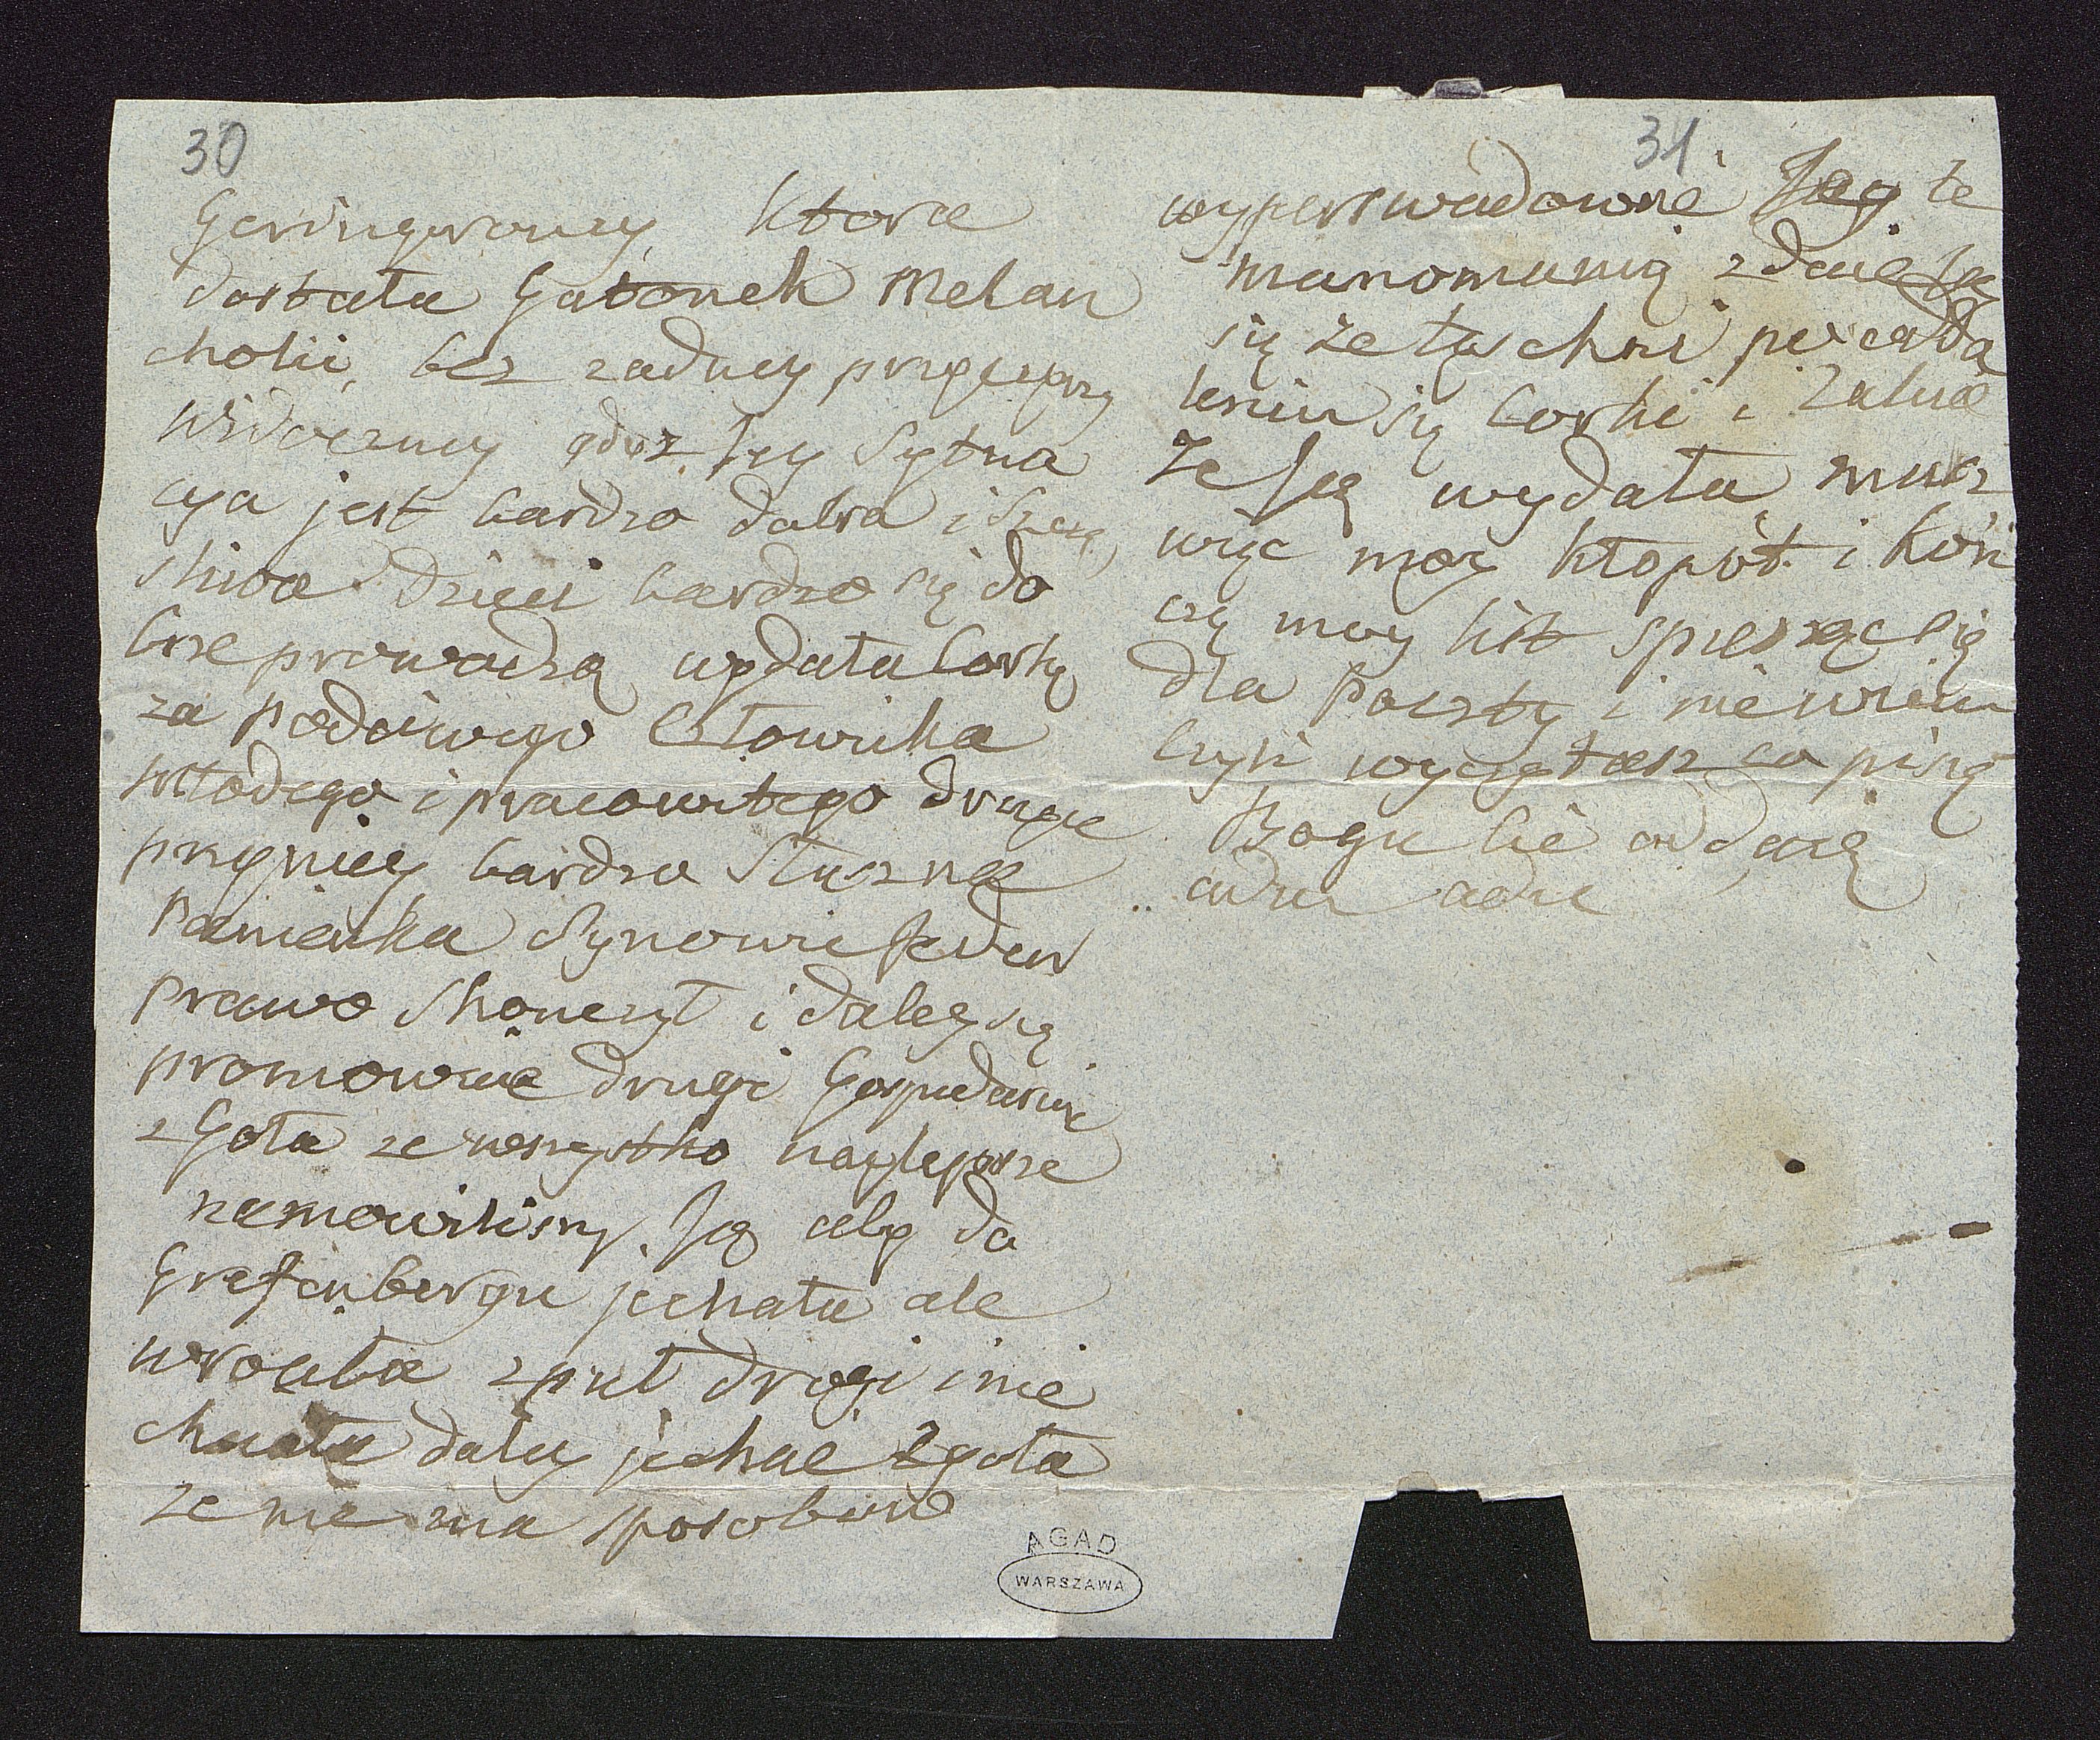 30
Geringerowey ktora
dostała Gatonek Melan
cholii, bez zadney przyczyny
widoczney gdyz Jey Sytua
cya jest bardzo dobra i szczę
sliwa Dzieci bardzo się do
brze prowadzą wydała Corkę
za podciwego Człowieka
młodego i pracowitego drugie
przyniey bardzo słuszne
Panienka Synowie Jeden
prawo skonczył i daley się
promowuie drugi Gospodaruie
zgoła ze wszystko naylepsze
namowilismy Ją aby do
Grefenbergu jechała ale
wrocıła zpuł drogi i nie
chciała daley jechac zgoła
ze nie ma sposobu
31
wyperswadowac Jey te
manomanią zdaie Jey
się że tęschni po odda
leniu się Corki i załuie
ze Ją wydała, masz
więc moy kłopot i Koń
czę moy list spiesząc się
dla poczty i niewiem
czyli wyczytasz co piszę
Bogu Cie oddaię
adieu adieu
AGAD
WARSZAWA